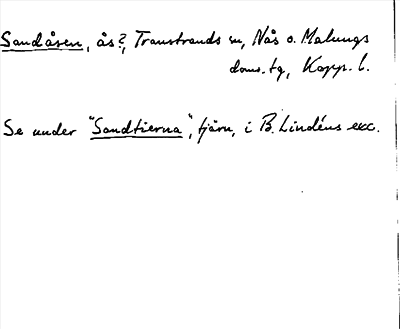 Sandåsen, ås?, Transtrands sn, Nås o. Malungs
doms.tg, Kopp. l.
Se under "Sandtierna", tjärn, i B. Lindéns exc.